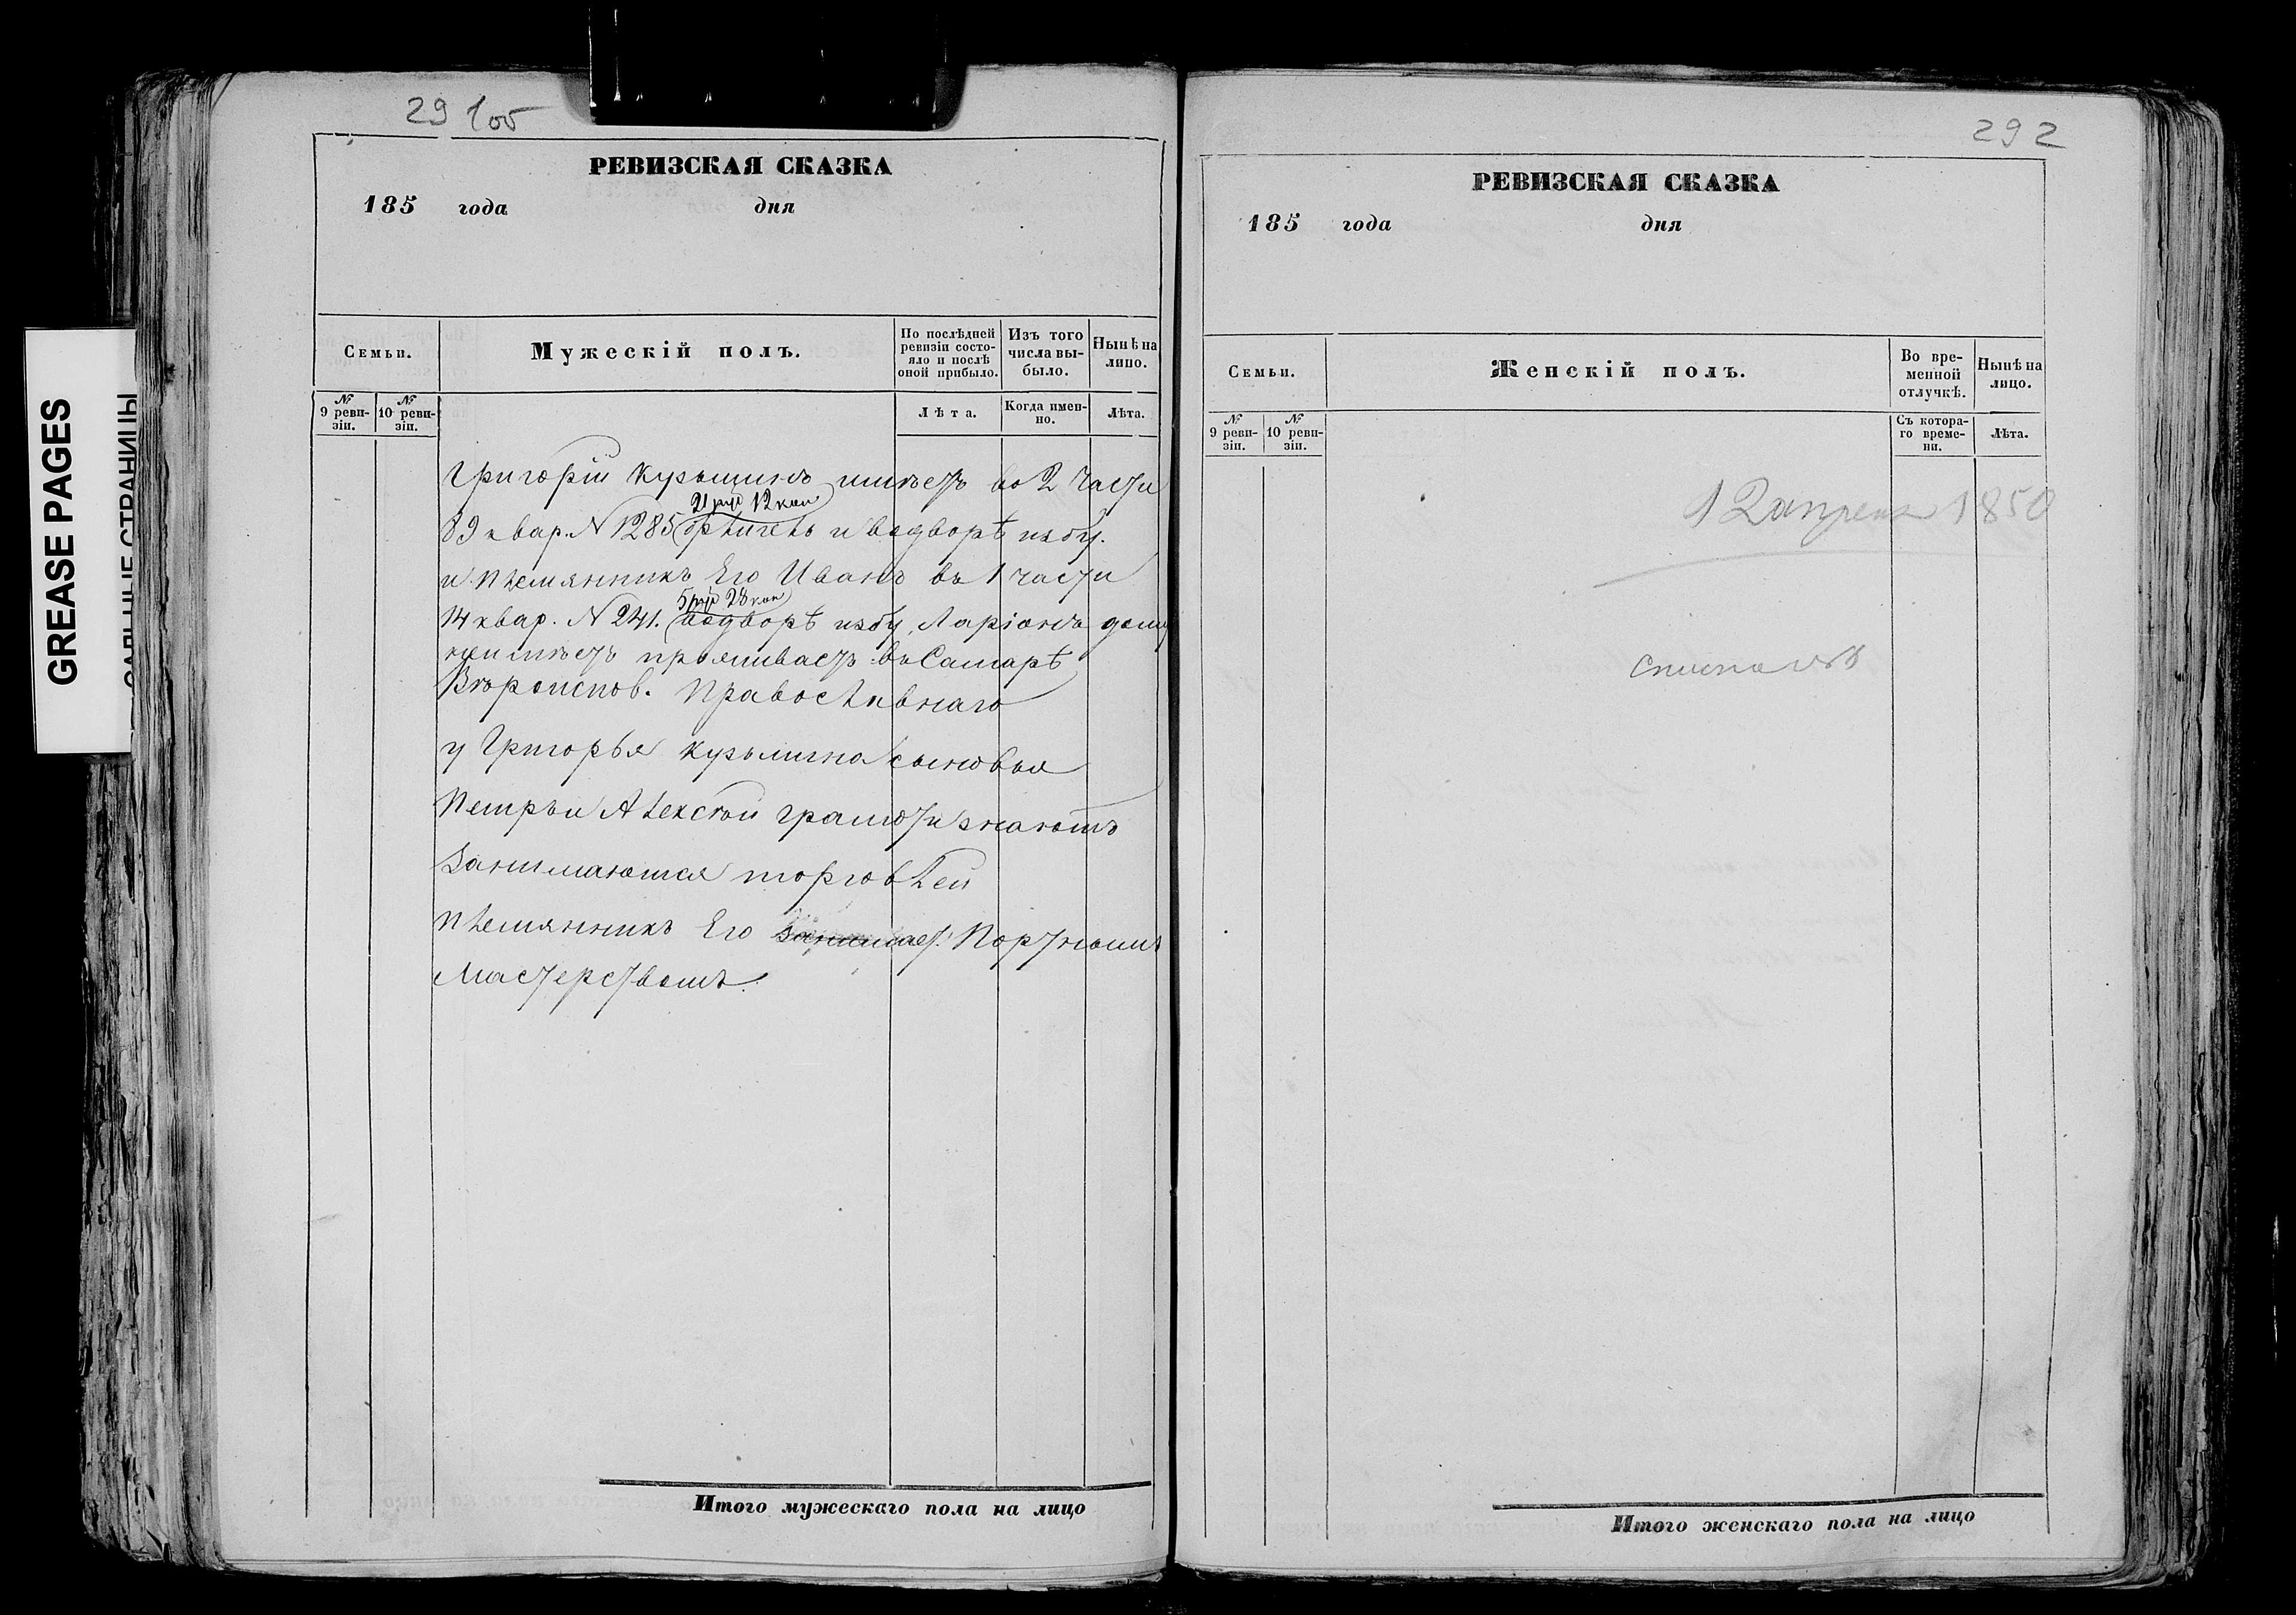 GREASE PAGES
САЛЬНЫЕ СТРАНИЦЫ
29 1об
РЕВИЗСКАЯ СКАЗКА
185 года дня
Семьи.
Мужескій полъ.
По послѣдней ревизіи состояло и послѣ оной прибыло.
Изъ того числа выбыло.
Нынѣ на лицо.
№ 9 ревизіи.
№ 10 ревизіи.
Лѣта.
Когда именно.
Лѣта.
Григорій Кузьминъ имѣетъ во 2 части
21 руб 12 коп
89 квар. N 1285 флигель и водворѣ избу.
и племянникъ Его Иванъ въ 1 части
5 руб 28 коп
14 квар. N 241. водворѣ избу, Ларіонъ дому
неимѣетъ проживаетъ въ Самарѣ
Вѣроиспов. Православнаго
у Григорья Кузьмина сыновья
Петръ и Алексѣй грамоти знаютъ
Занимаются торговлей
племянникъ Его занимает. Портнымъ
Мастерствомъ.
Итого мужескаго пола на лицо
292
РЕВИЗСКАЯ СКАЗКА
185 года дня
Семьи.
Женскій полъ.
Во временной отлучкѣ.
Нынѣ на лицо.
№ 9 ревизіи.
№ 10 ревизіи.
Съ котораго времени.
Лѣта.
12 апреля 1850
Итого женскаго пола на лицо